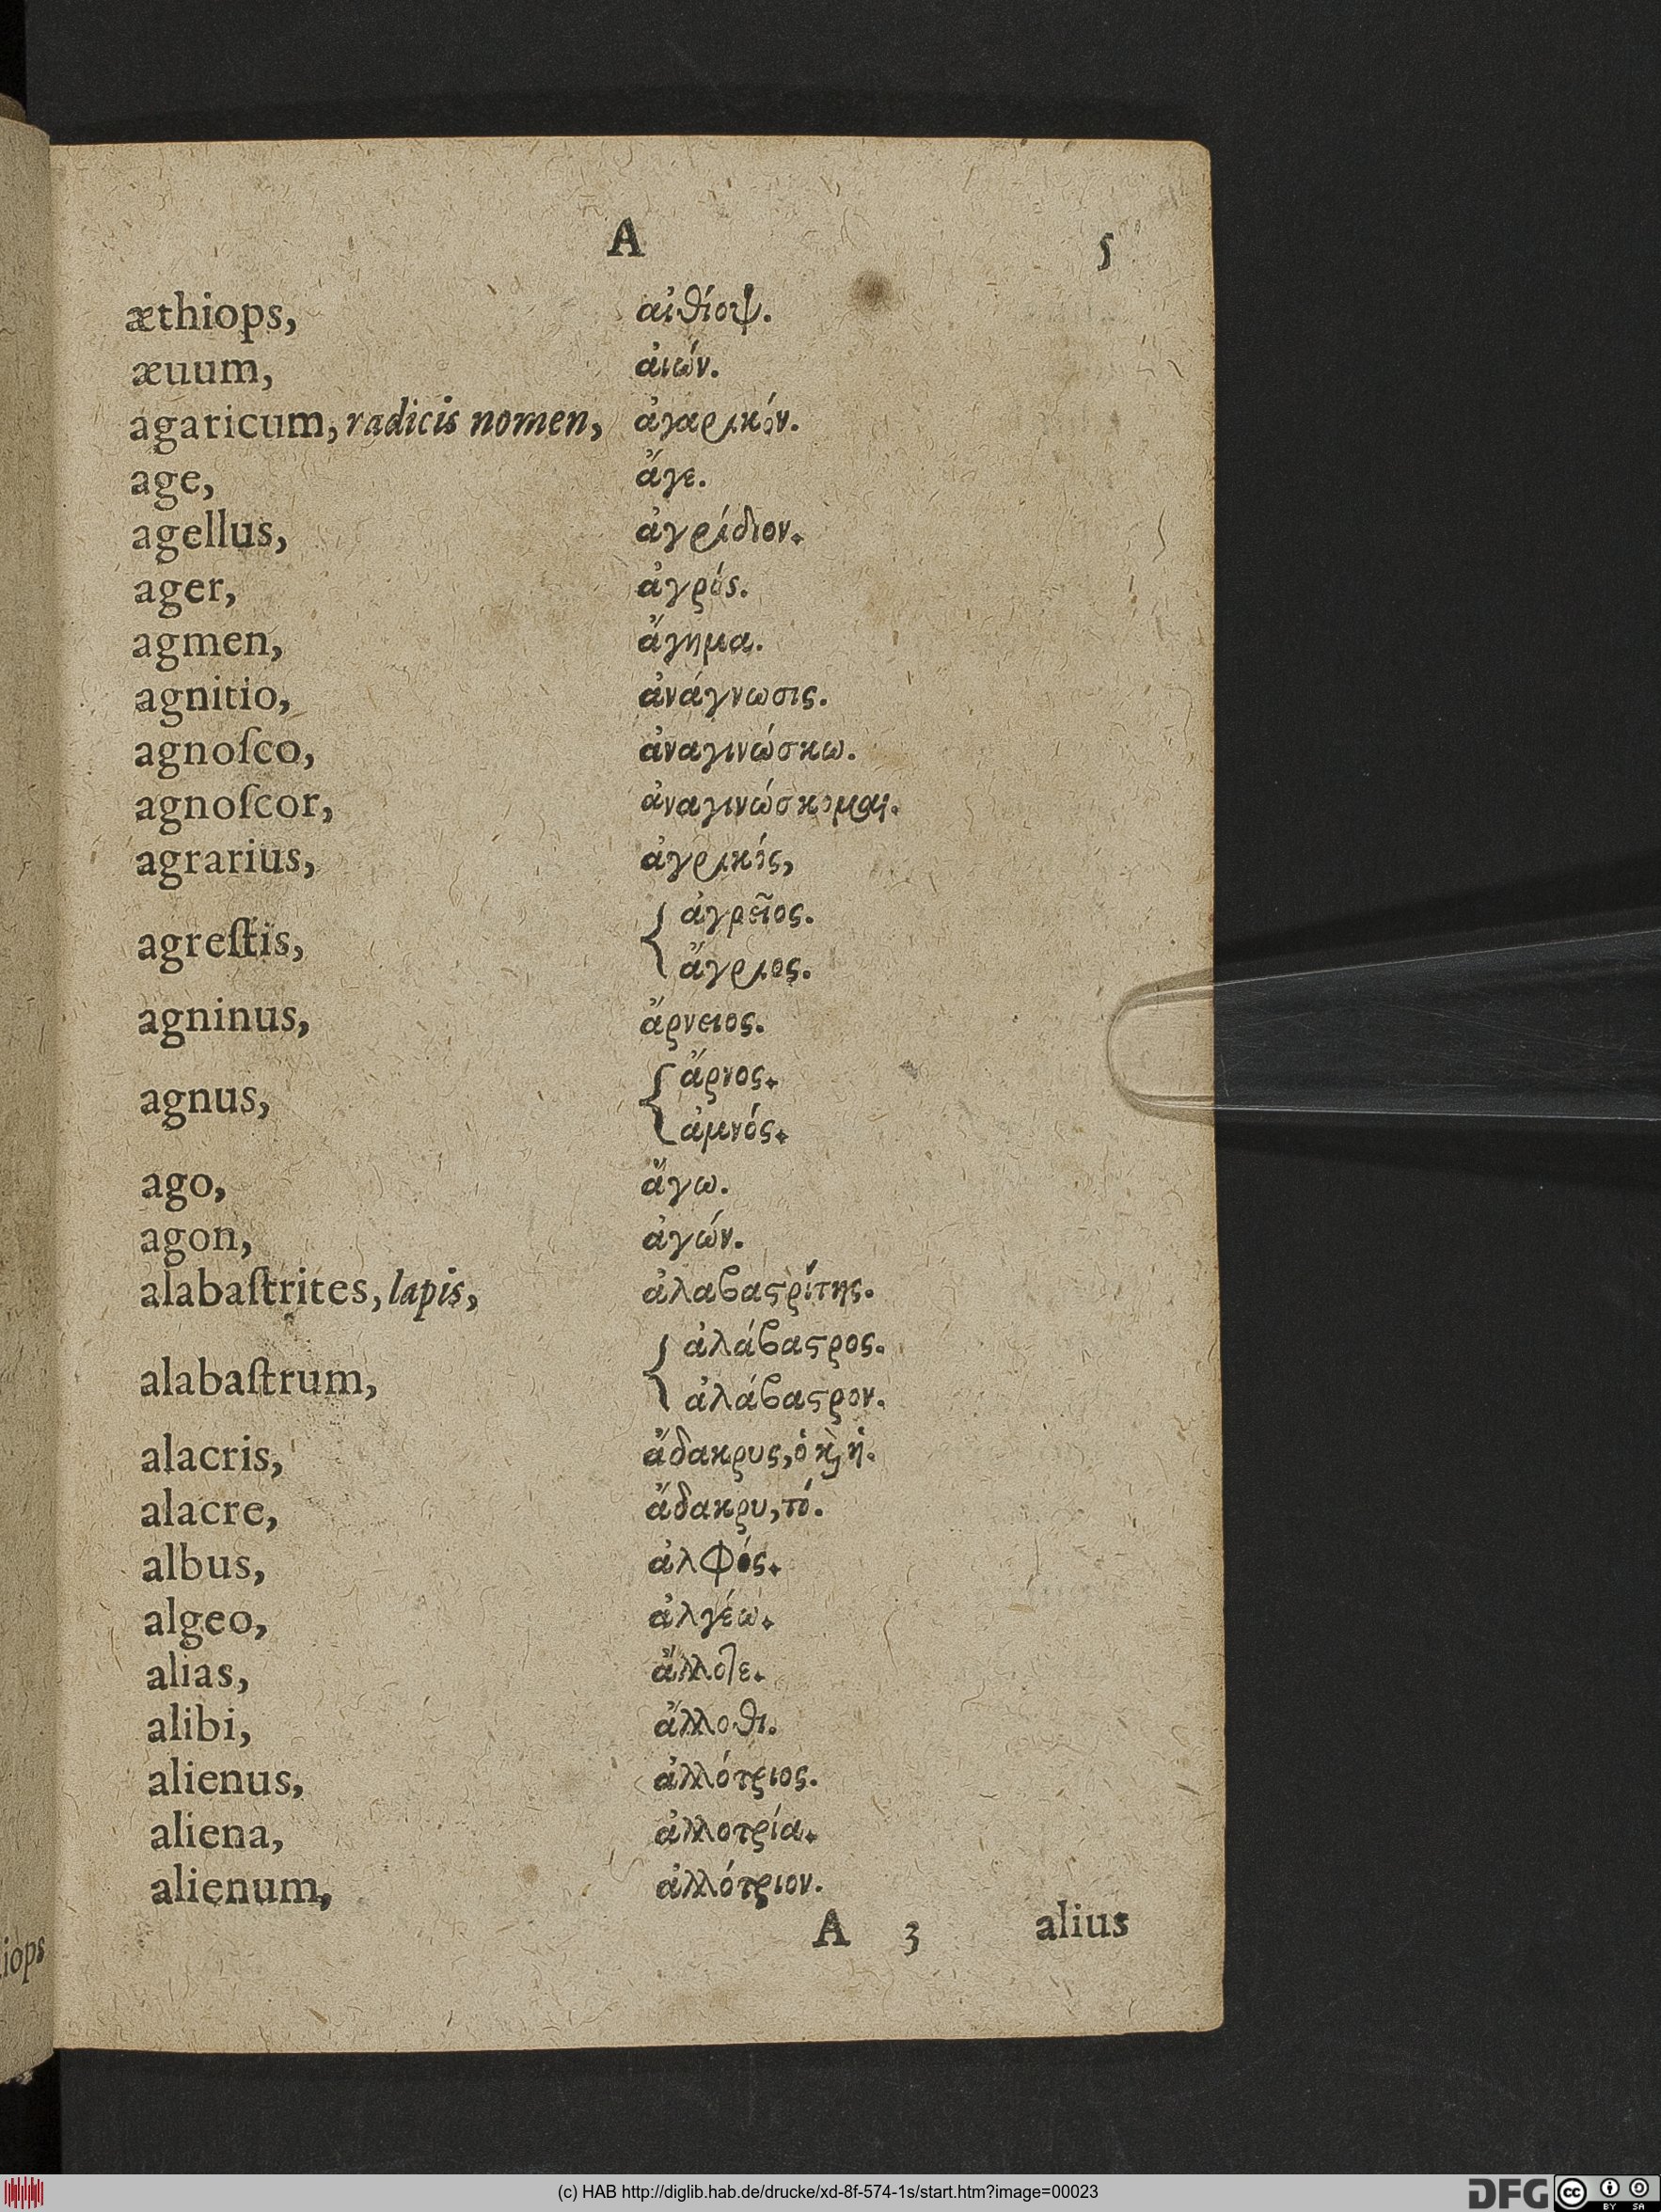 A 5
æthiops, αἰθίοψ.
æuum, ἀιών.
agaricum, radicis nomen, ἀγαρικόν.
age, ἄγε.
agellus, ἀγρίδιον.
ager, ἀγρός.
agmen, ἄγημα.
agnitio, ἀνάγνωσις.
agnoſco, ἀναγινώσκω.
agnoſcor, ἀναγινώσκομαι.
agrarius, ἀγρικός,
agreſtis, { ἀγρεῖος.
ἄγριος.
agninus, ἄρνειος.
agnus, { ἄρνος.
ἀμνός.
ago, ἄγω.
agon, ἀγών.
alabaſtrites, lapis, ἀλαβαϛρίτης.
alabaſtrum, { ἀλάβαϛρος.
ἀλάβαϛρον.
alacris, ἄδακρυς, ὁ ϗ̀ ἡ.
alacre, ἄδακρυ, τό.
albus, ἀλφός.
algeo, ἀλγέω.
alias, ἄλλοτε.
alibi, ἄλλοθι.
alienus, ἀλλότριος.
aliena, ἀλλοτρία.
alienum, ἀλλότριον.
A 3 alius
iops
(c) HAB http://diglib.hab.de/drucke/xd-8f-574-1s/start.htm?image=00023
DFG cc BY SA